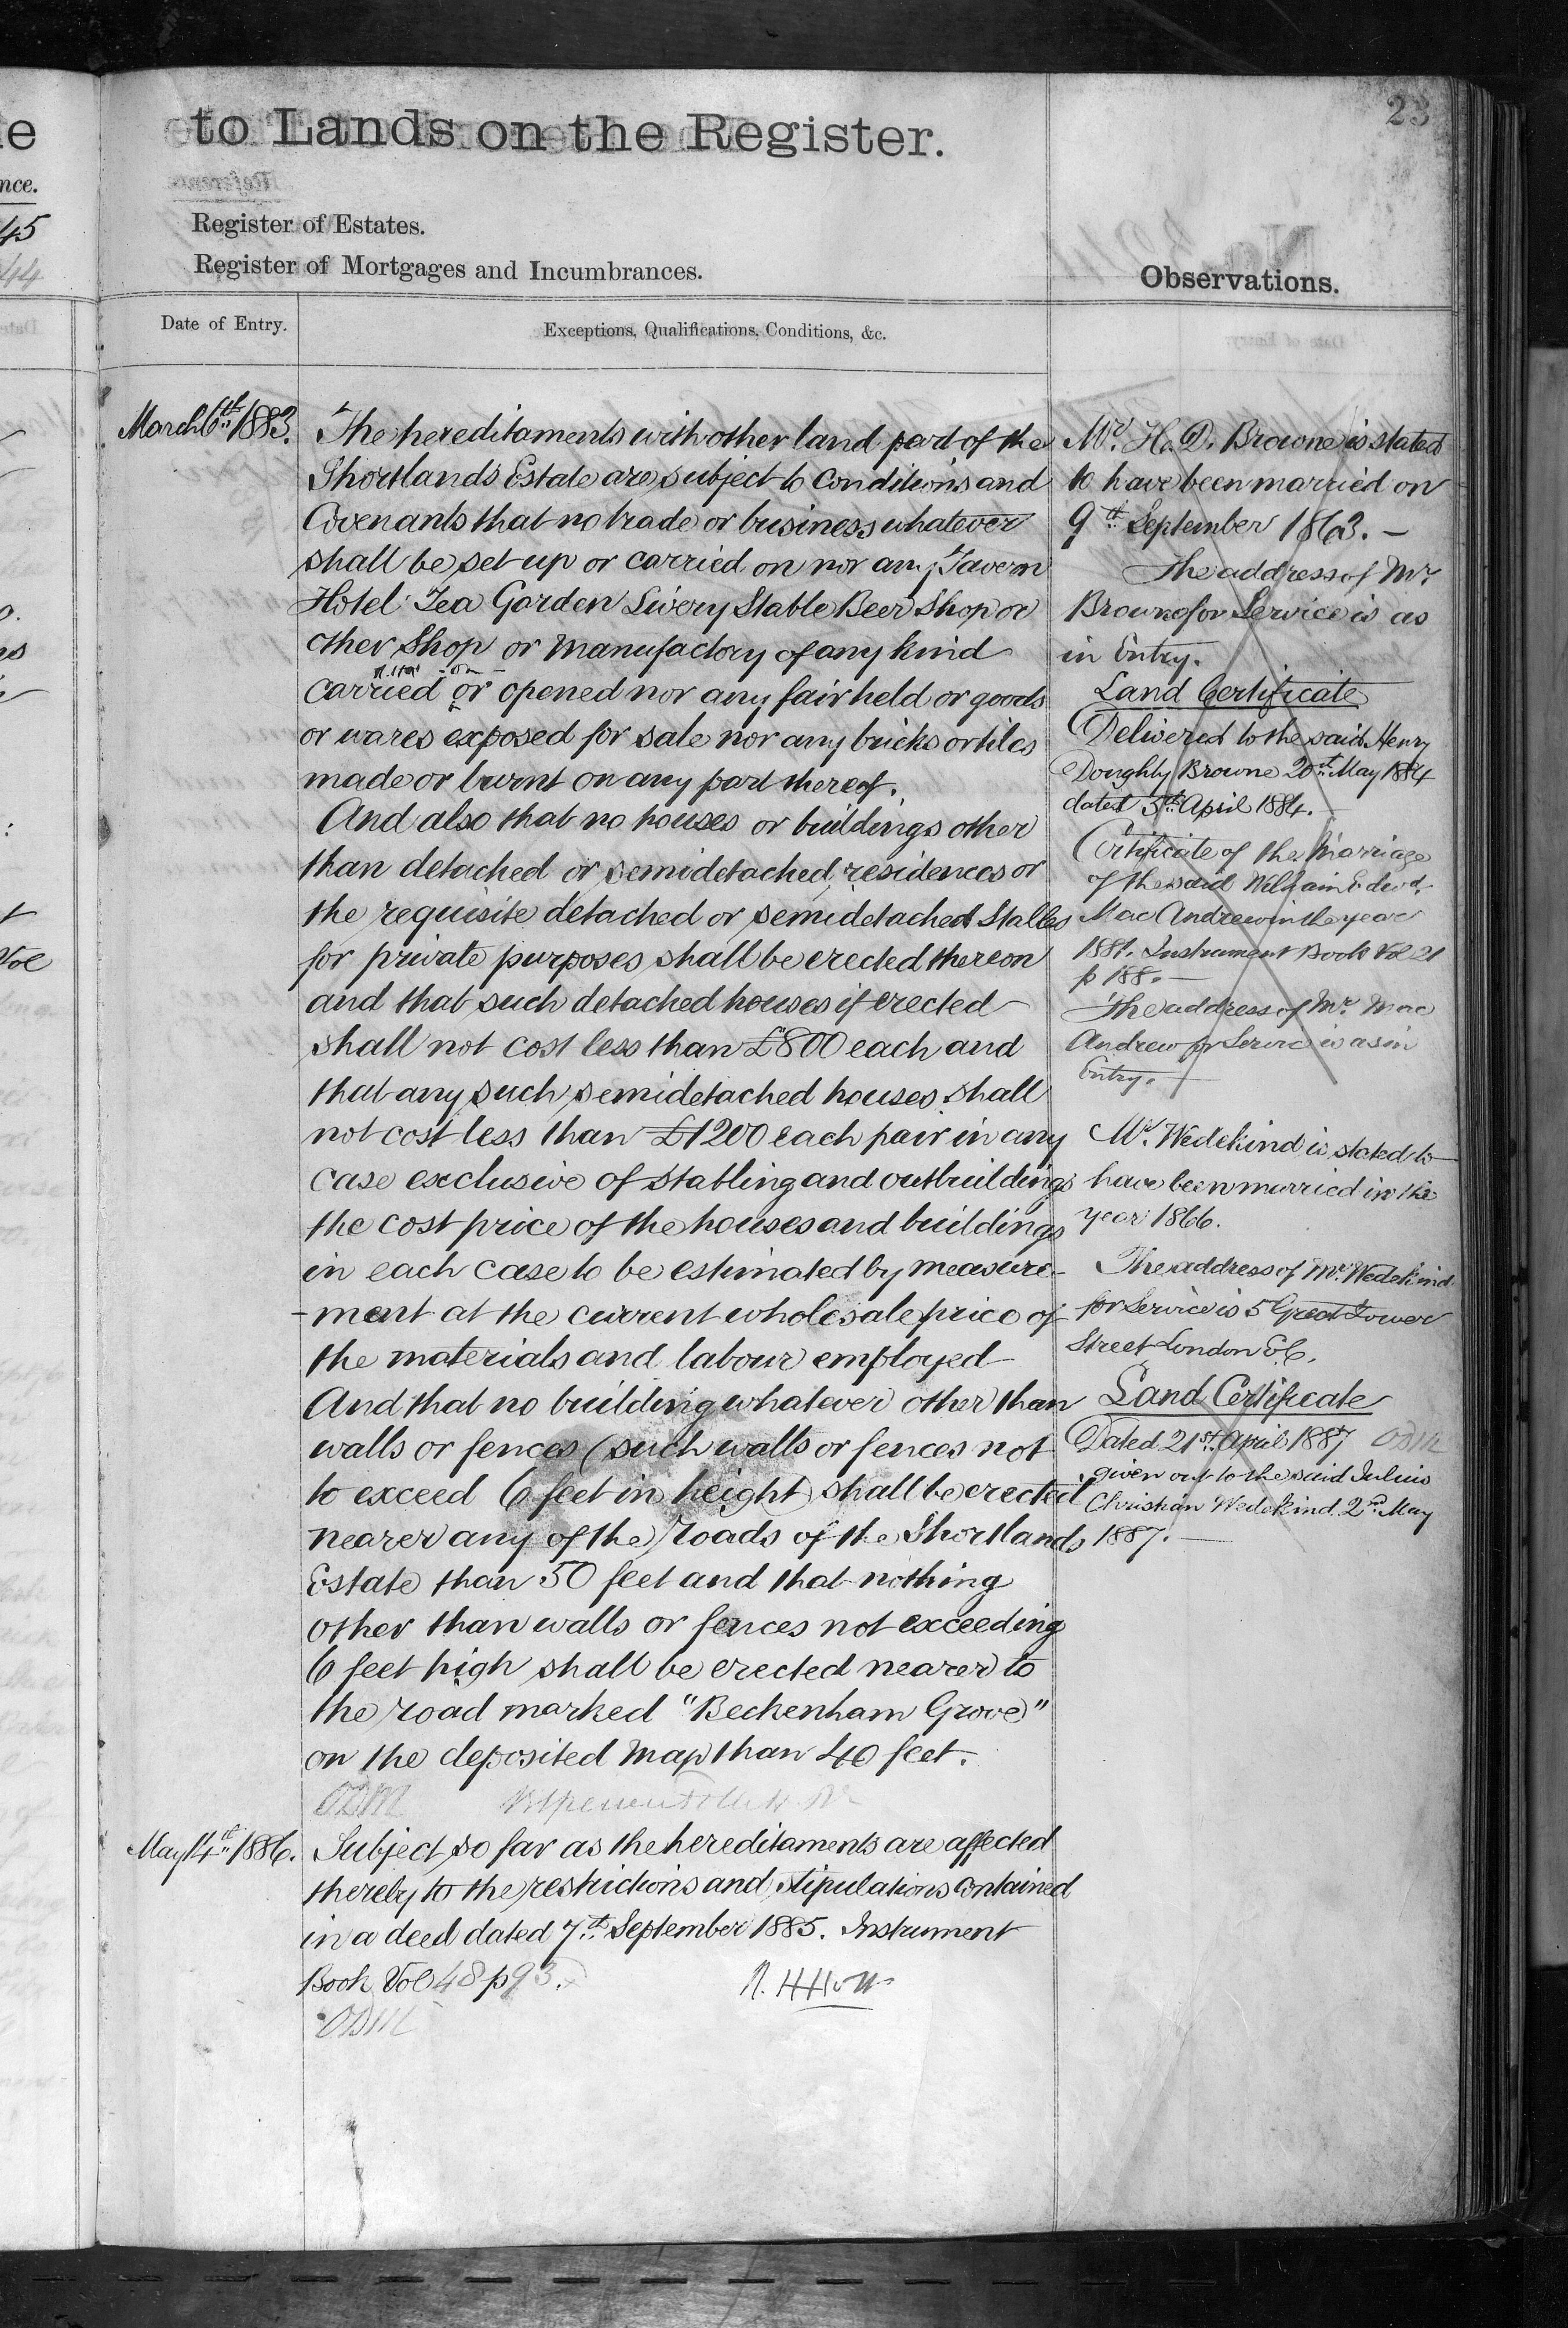 23
to Lands on the Register.
Register of Estates.
Register of Mortgages and Incumbrances.
Observations.
Date of Entry.
Exceptions, Qualifications, Conditions, &c.
March 6th 1883.
The hereditaments with other land part of the
Shortlands Estate are subject to Conditions and
Covenants that no trade or business whatever
shall be set up or carried on nor any Tavern
Hotel Tea Garden Livery Stable Beer Shop or
other Shop or Manufactory of any kind
on
carried or opened nor any fair held or goods
or wares exposed for sale nor any bricks or tiles
made or burnt on any part thereof.
And also that no houses or buildings other
than detached or semidetached residences or
the requisite detached or semidetached Stables
for private purposes shall be erected thereon
and that such detached houses if erected
shall not cost less than £800 each and
that any such semidetached houses shall
not cost less than £1200 each pair in any
case exclusive of stabling and outbuildings
the cost price of the houses and buildings
in each case to be estimated by measure-
-ment at the current wholesale price of
the materials and labour employed
And that no building whatever other than
walls or fences (such walls or fences not
to exceed 6 feet in height) shall be erected
nearer any of the roads of the Shortlands
Estate than 50 feet and that nothing
other than walls or fences not exceeding
6 feet high shall be erected nearer to
the road marked "Beckenham Grove"
on the deposited Map than 40 feet.
ODM
May 14th 1886.
Subject so far as the hereditaments are affected
thereby to the restrictions and stipulations contained
in a deed dated 7th September 1885. Instrument
Book Vol 48 p 93.
ODM
Mr. H. D. Browne is stated
to have been married on
9th September 1863. -
The address of Mr
Browne for Service is as
in Entry.
Land Certificate
Delivered to the said Henry
Doughty Browne 20th May 1884
dated 5th April 1884.
Certificate of the Marriage
of the said William Edwd.
Mac Andrew in the year
1881. Instrument Book Vol 21
p 188. -
The address of Mr. Mac
Andrew for Service is as in
Entry. -
Mr. Wedekind is stated to
have been married in the
year 1866.
The address of Mr. Wedekind
for Service is 5 Great Tower
Street London E.C.
Land Certificate
Dated 21st April 1887 ODM
given out to the said Julius
Christian Wedekind 2nd May
1887. -